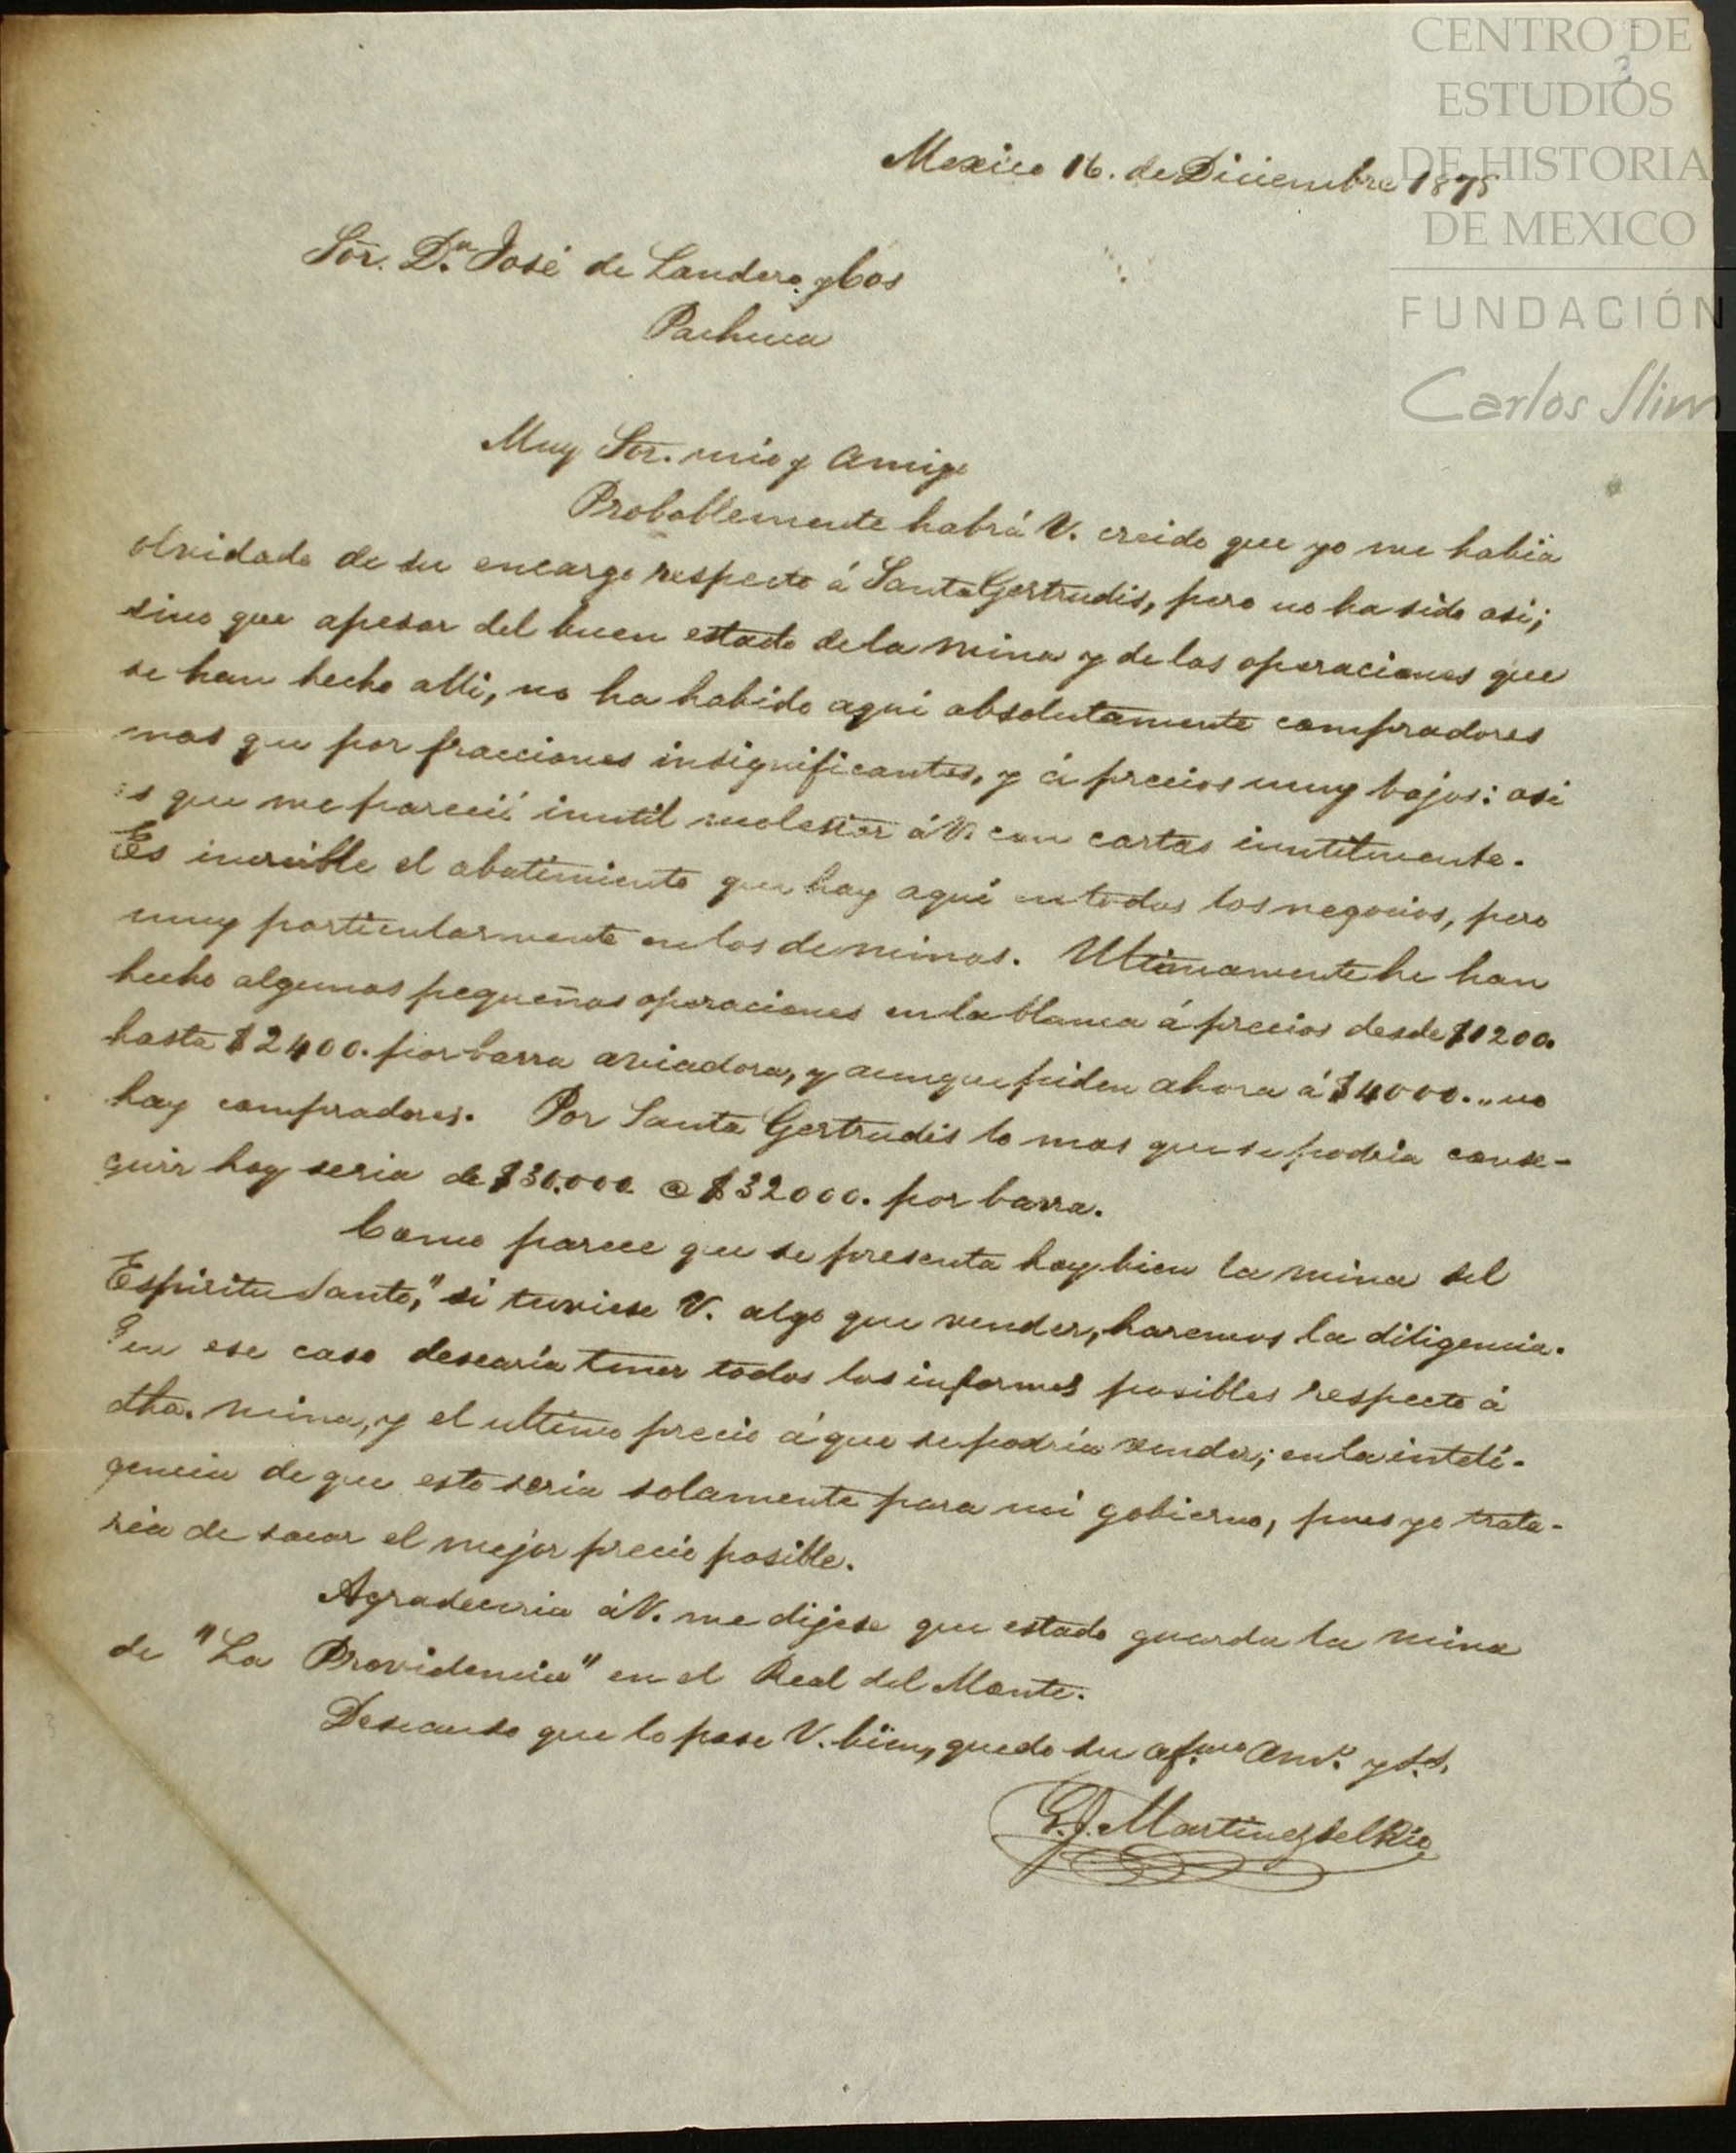 CENTRO DE
ESTUDIOS
DE HISTORIA
DE MEXICO
FUNDACIÓN
Carlos Slim
3
Mexico 16. de Diciembre 1875
Sor. Dn. José de Landero y Cos
Pachuca
Muy Sor. mio y Amigo
Probablemente habrá V. creido que yo me habia
olvidado de su encargo respecto á Santa Gertrudis, pero no ha sido asi;
sino que apesar del buen estado de la mina y de las operaciones que
se han hecho alli, no ha habido aqui absolutamente compradores
mas que por fracciones insignificantes, y á precios muy bajos: asi
es que me pareció inutil molestar á V. con cartas inutilmente.
Es increible el abatimiento que hay aqui en todos los negocios, pero
muy particularmente en los de minas. Ultimamente he han
hecho algunas pequeñas operaciones en la blanca á precios desde $1200.
hasta $2400. por barra aviadora, y aunque piden ahora á $4000.„ no
hay compradores. Por Santa Gertrudis lo mas que se podria conse-
guir hoy seria de $30.000. @ $32000. por barra.
Como parece que se presenta hoy bien la mina del
Espiritu Santo," si tuviese V. algo que vender, haremos la diligencia.
en ese caso desearia tener todos los informes posibles respecto á
dha. mina, y el ultimo precio á que se podria vender; en la inteli-
gencia de que esto seria solamente para mi gobierno, pues yo trata-
ria de sacar el mejor precio posible.
Agradeceria á V. me dijese que estado guarda la mina
de "La Providencia" en el Real del Monte.
Deseando que lo pase V. bien, quedo su afmo. Amo. y S.S.
G. J. Martinez del Rio